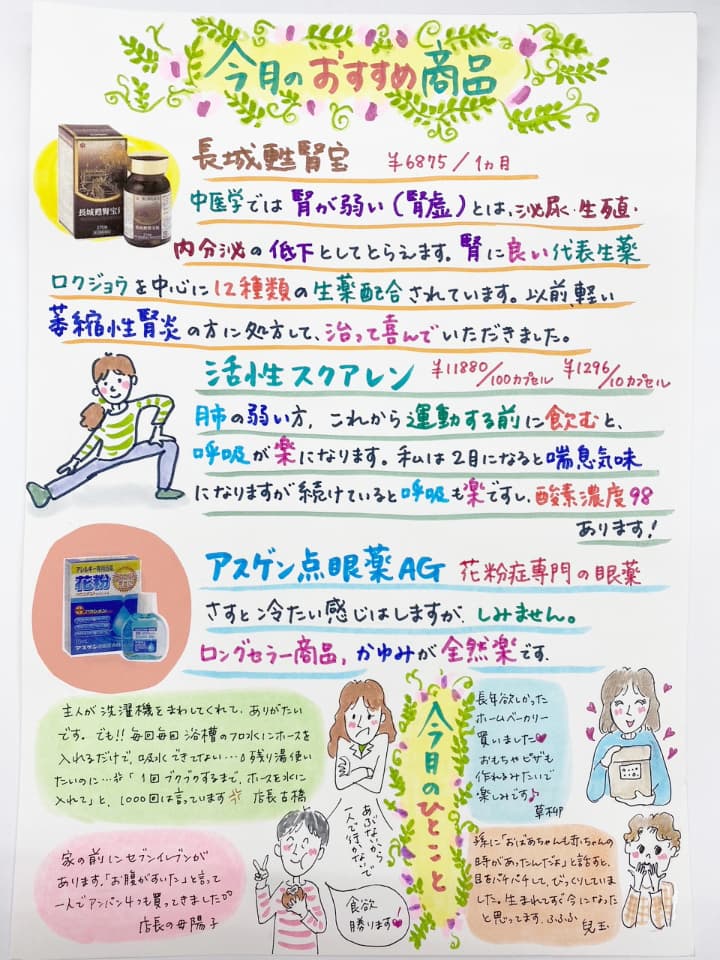 今月のおすすめ商品
長城甦腎宝 ¥6875/1ヵ月
中医学では腎が弱い(腎虚)とは、泌尿・生殖・
内分泌の低下としてとらえます。腎に良い代表生薬
ロクジョウを中心に12種類の生薬配合されています。以前、軽い
萎縮性腎炎の方に処方して、治って喜んでいただきました。
長城甦腎宝
活性スクアレン ¥11880/100カプセル ¥1296/10カプセル
肺の弱い方、これから運動する前に飲むと、
呼吸が楽になります。私は2月になると喘息気味
になりますが続けていると呼吸も楽ですし、酸素濃度98
あります!
アスゲン点眼薬AG 花粉症専門の眼薬
さすと冷たい感じはしますが、しみません。
ロングセラー商品,かゆみが全然楽です.
アレルギー専用点眼薬
花粉
アスゲン点眼薬AG
主人が洗濯機をまわしてくれて、ありがたい
です。でも!!毎回毎回浴槽のフロ水にホースを
入れるだけで、吸水できてない…残り湯使い
たいのに…「1回ブクブクするまで、ホースを水に
入れて」と、1000回は言っています 店長古橋
家の前にセブンイレブンが
あります。「お腹がすいた」と言って
一人でアンパン4つも買ってきました
店長の母陽子
あぶないから
一人で行かないで
食欲
勝ります!
今月のひとこと
長年欲しかった
ホームベーカリー
買いました♥
おもちゃピザも
作れるみたいで
楽しみです♪
草柳
孫に「おばあちゃんも赤ちゃんの
時があったんだよ」と話すと、
目をパチパチして、びっくりしていま
した。生まれてすぐ今になった
と思ってます。ふふふ 兒玉